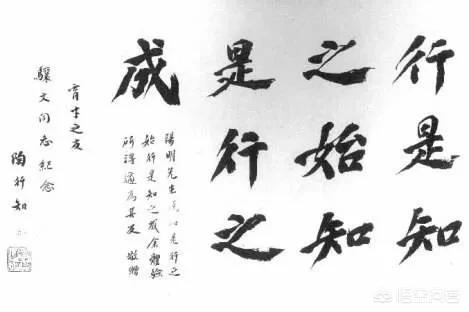 行是知
之始知
是行之
成
陽明先生知是行之
始行是知之成余體驗
所得適為其反 敬贈
育才之友
文同志紀念
陶行知
悟空问答